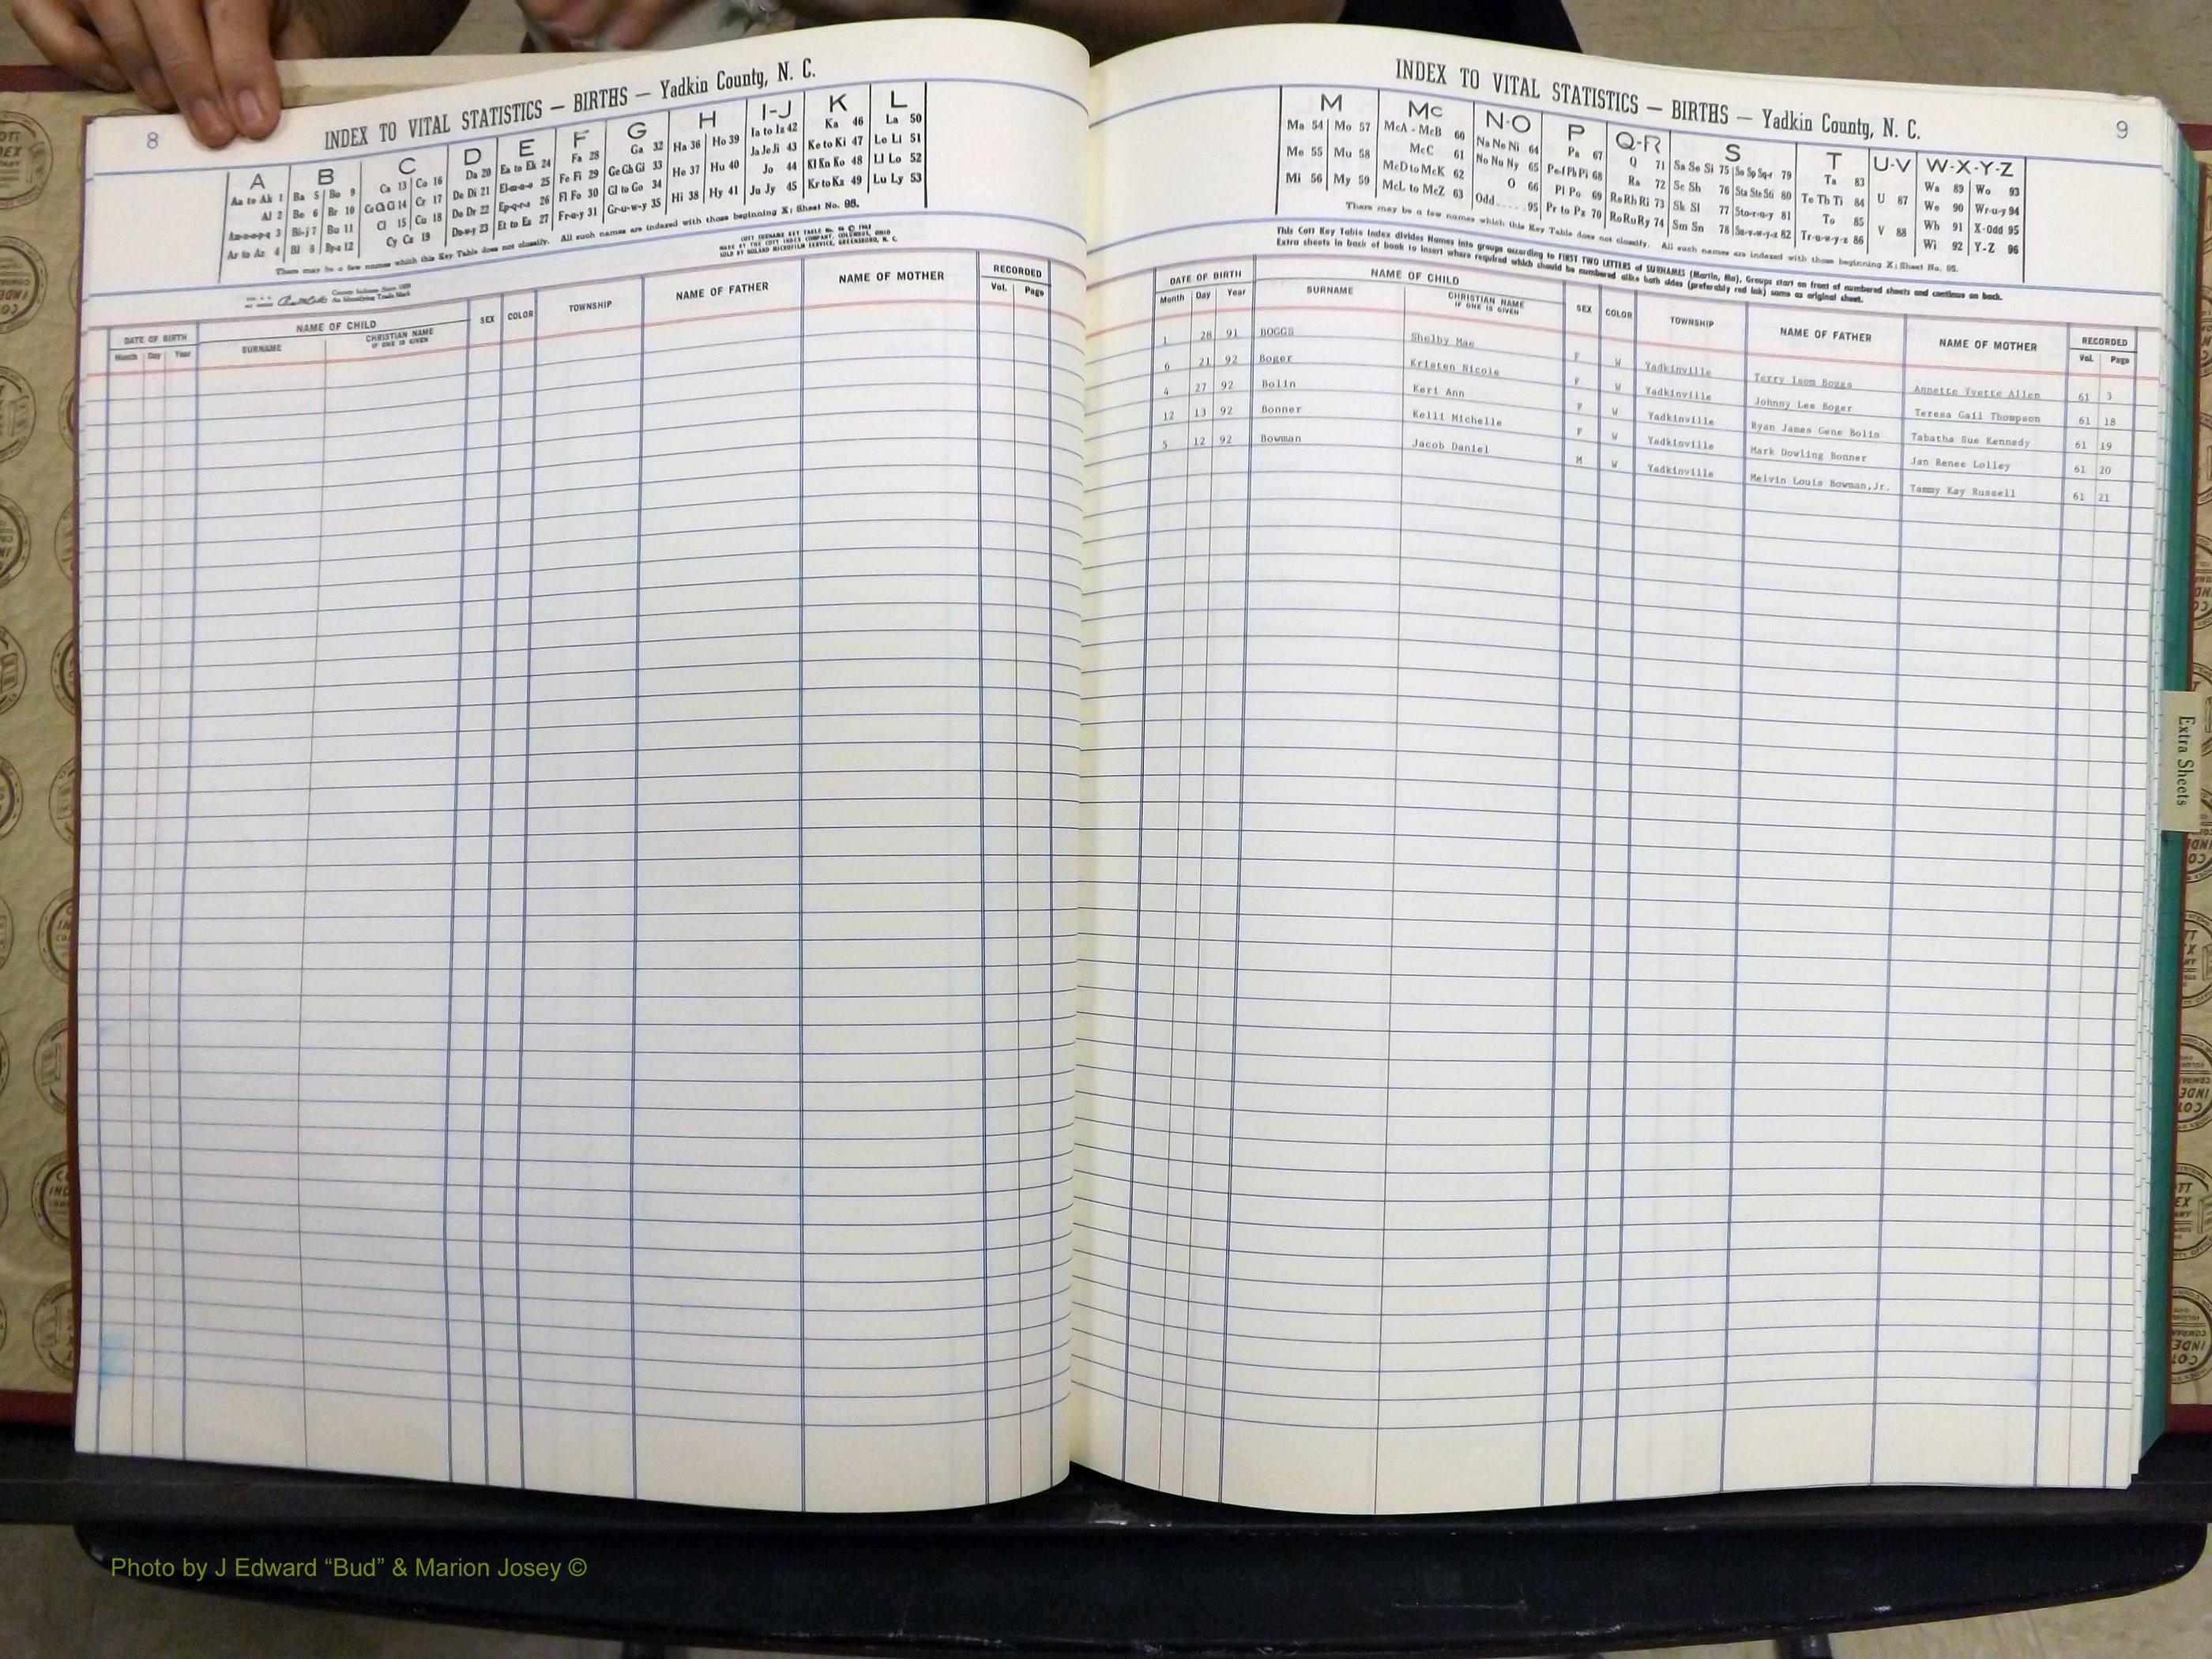 8
INDEX TO VITAL STATISTICS — BIRTHS — Yadkin County, N. C.
A B C D E F G H I-J K L
Aa to Ak 1 Ba 5 Bo 9 Ca 13 Co 16 Da 20 Ea to Ek 24 Fa 28 Ga 32 Ha 36 Ho 39 Ia to Iz 42 Ka 46 La 50
Al 2 Be 6 Br 10 Ce Ch Ci 14 Cr 17 De Di 21 El-m-n-o 25 Fe Fi 29 Ge Gh Gi 33 He 37 Hu 40 Ja Je Ji 43 Ke to Ki 47 Le Li 51
Bi-j 7 Bu 11 Cl 15 Cu 18 Do Dr 22 Ep-q-r-s 26 Fl Fo 30 Gl to Go 34 Hi 38 Hy 41 Jo 44 Kl Kn Ko 48 Ll Lo 52
Ar to Az 4 Bl 8 By-z 12 Cy Cz 19 Du-w-y 23 Et to Ez 27 Fr-u-y 31 Gr-u-w-y 35 Ju Jy 45 Kr to Kz 49 Lu Ly 53
There may be a few names which this Key Table does not classify. All such names are indexed with those beginning X; Sheet No. 95.
MADE BY THE COTT INDEX COMPANY, COLUMBUS, OHIO
SOLD BY ROLAND MICROFILM SERVICE, GREENSBORO, N. C.
An Identifying Trade Mark
DATE OF BIRTH NAME OF CHILD SEX COLOR TOWNSHIP NAME OF FATHER NAME OF MOTHER RECORDED
Month Day Year SURNAME CHRISTIAN NAME IF ONE IS GIVEN Vol. Page
INDEX TO VITAL STATISTICS — BIRTHS — Yadkin County, N. C.
9
M Mc N-O P Q-R S T U-V W-X-Y-Z
Ma 54 Mo 57 McA - McB 60 Na Ne Ni 64 Pa 67 Q 71 Sa Se Si 75 So Sp Sq-r 79 Ta 83 U 87 Wa 89 Wo 93
Me 55 Mu 58 McC 61 No Nu Ny 65 Pe-f Ph Pi 68 Ra 72 Sc Sh 76 Sta Ste Sti 80 Te Th Ti 84 V 88 We 90 Wr-u-y 94
Mi 56 My 59 McD to McK 62 O 66 Pl Po 69 Re Rh Ri 73 Sk Sl 77 Sto-r-u-y 81 To 85 Wh 91 X-Odd 95
McL to McZ 63 Odd 95 Pr to Pz 70 Ro Ru Ry 74 Sm Sn 78 Su-v-w-y-z 82 Tr-u-w-y-z 86 Wi 92 Y-Z 96
There may be a few names which this Key Table does not classify. All such names are indexed with those beginning X; Sheet No. 95.
This Cott Key Table Index divides Names into groups according to FIRST TWO LETTERS of SURNAMES (Martin, Ma). Groups start on front of numbered sheets and continue on back.
Extra sheets in back of book to insert where required which should be numbered alike both sides (preferably red ink) same as original sheet.
DATE OF BIRTH NAME OF CHILD SEX COLOR TOWNSHIP NAME OF FATHER NAME OF MOTHER RECORDED
Month Day Year SURNAME CHRISTIAN NAME IF ONE IS GIVEN Vol. Page
1 28 91 BOGGS Shelby Mae F W Yadkinville Terry Isom Boggs Annette Yvette Allen 61 3
6 21 92 Boger Kristen Nicole F W Yadkinville Johnny Lee Boger Teresa Gail Thompson 61 18
4 27 92 Bolin Keri Ann F W Yadkinville Ryan James Gene Bolin Tabatha Sue Kennedy 61 19
12 13 92 Bonner Kelli Michelle F W Yadkinville Mark Dowling Bonner Jan Renee Lolley 61 20
5 12 92 Bowman Jacob Daniel M W Yadkinville Melvin Louis Bowman,Jr. Tammy Kay Russell 61 21
Extra Sheets
Photo by J Edward “Bud” & Marion Josey ©